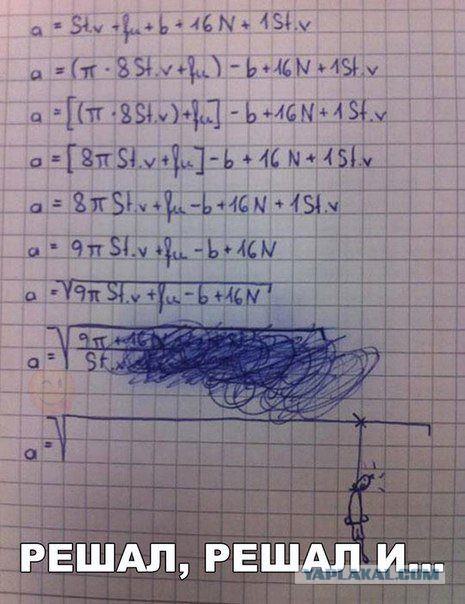 a = St.v + fu + b + 16N + 1St.v
a = (π · 8St.v + fu) - b + 16N + 1St.v
a = [(π · 8St.v) + fu] - b + 16N + 1St.v
a = [8π St.v + fu] - b + 16N + 1St.v
a = 8π St.v + fu - b + 16N + 1St.v
a = 9π St.v + fu - b + 16N
a = √9π St.v + fu - b + 16N
a = √9π + 16N
St.
a = √
РЕШАЛ, РЕШАЛ И...
YAPLAKAL.COM